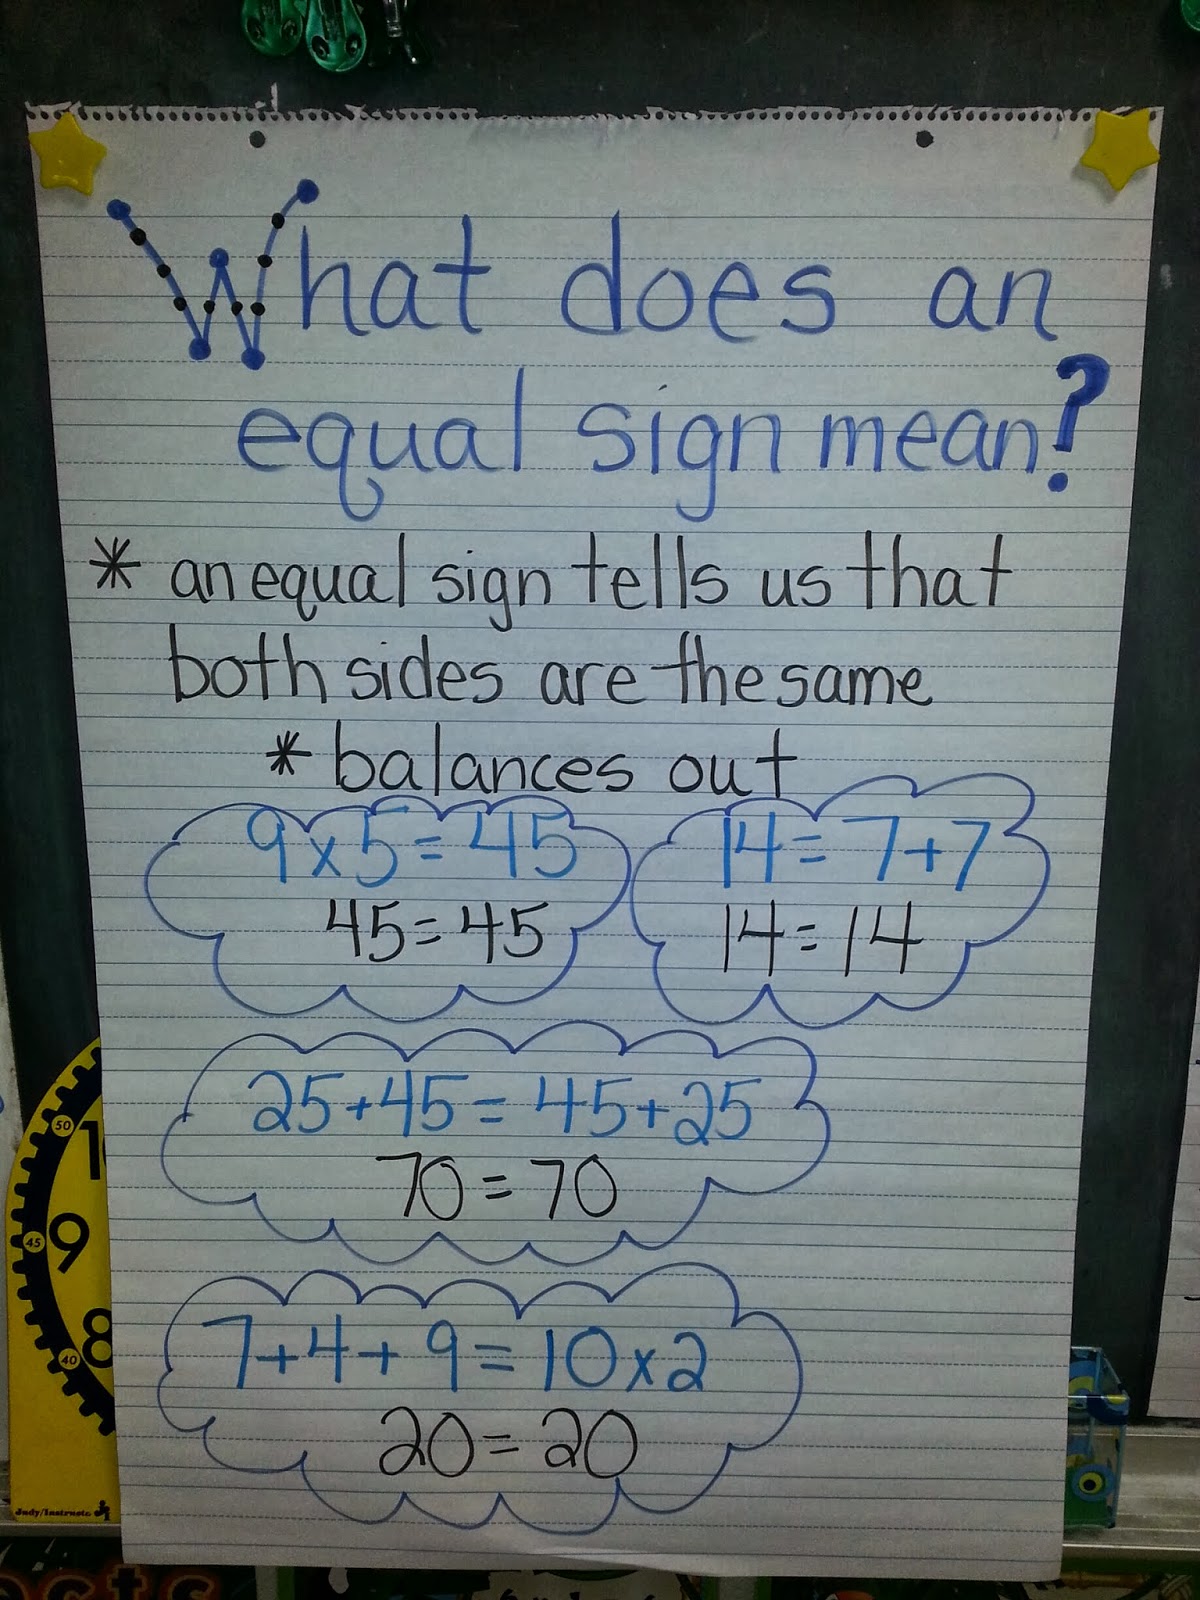 What does an
equal sign mean?
* an equal sign tells us that
both sides are the same
* balances out
9 x 5 = 45
45 = 45
14 = 7 + 7
14 = 14
25 + 45 = 45 + 25
70 = 70
7 + 4 + 9 = 10 x 2
20 = 20
50
45
9
8
40
Judy/Instructo